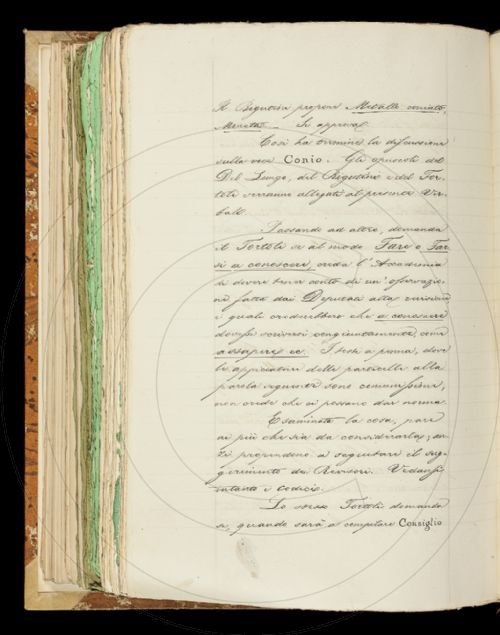 Il Rigutini propone Medaglia coniata,
Moneta — Si approva.
Così ha termine la discussione
sulla voce Conio. Gli opuscoli del
Del Lungo, del Rigutini e del Tor-
toli verranno allegati al presente Ver-
bale.
Passando ad altro, domanda
il Tortoli se al modo Fare o Far-
si a conoscere, creda l'Accademia
di dover tener conto di un'osservazio-
ne fatta dai Deputati alla revisione
i quali crederebbero che a conoscere
dovesse scriversi congiuntamente, come
a sapere ec. I testi a penna, dove
le appiccature delle particelle alla
parola seguente sono comunissime,
non crede che ci possano dar norma.
Esaminata la cosa, pare
ai più che sia da considerarla; an-
zi propendono a seguitare il sug-
gerimento dei Revisori. Vedansi
intanto i Codici.
Lo stesso Tortoli domanda
se, quando sarà a compilare Consiglio